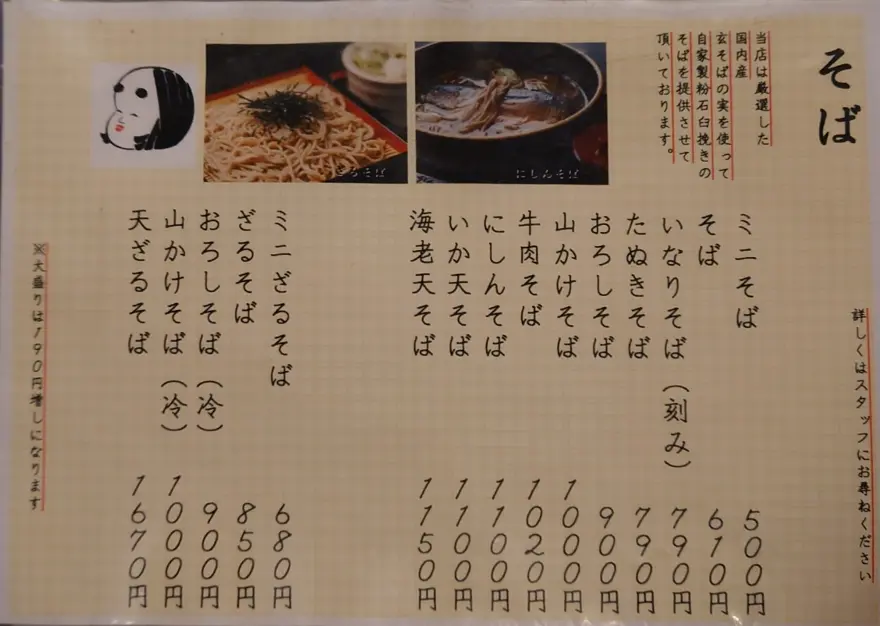 そば
当店は厳選した
国内産
玄そばの実を使って
自家製粉石臼挽きの
そばを提供させて
頂いております。
にしんそば
ざるそば
詳しくはスタッフにお尋ねください
ミニそば 500円
そば 610円
いなりそば(刻み) 790円
たぬきそば 790円
おろしそば 900円
山かけそば 1000円
牛肉そば 1020円
にしんそば 1100円
いか天そば 1100円
海老天そば 1150円
ミニざるそば 680円
ざるそば 850円
おろしそば(冷) 900円
山かけそば(冷) 1000円
天ざるそば 1670円
※大盛りは190円増しになります